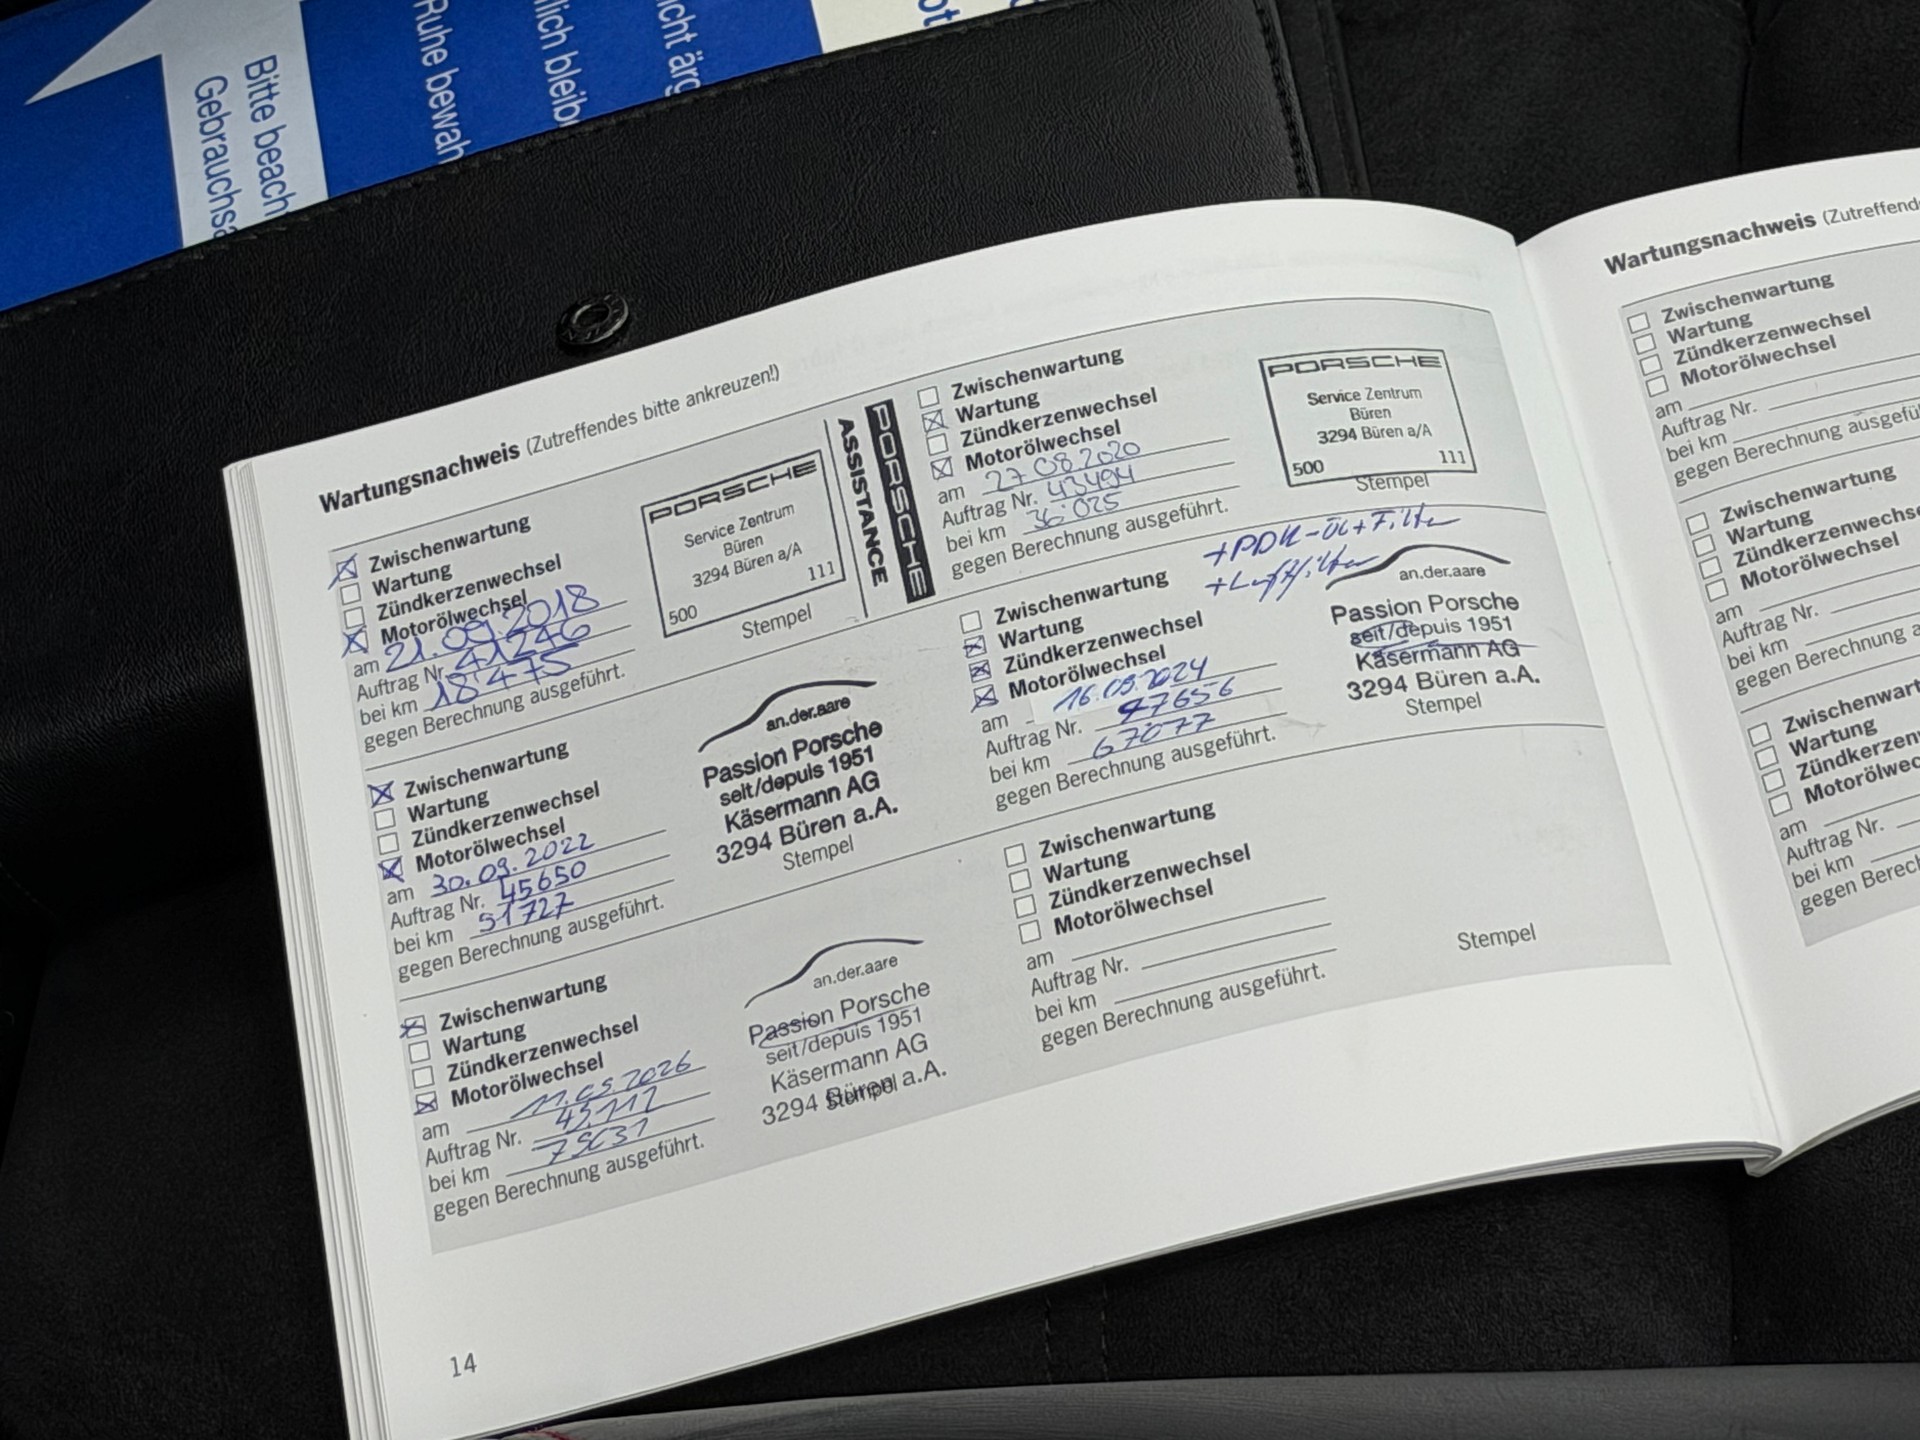 Bitte beach
Gebrauchsa
Ruhe bewah
lich bleib
icht ärg
Wartungsnachweis (Zutreffendes bitte ankreuzen!)
Zwischenwartung
Wartung
Zündkerzenwechsel
Motorölwechsel
am 21.09.2018
Auftrag Nr. 41246
bei km 18475
gegen Berechnung ausgeführt.
PORSCHE
Service Zentrum
Büren
3294 Büren a/A
500 111
Stempel
PORSCHE
ASSISTANCE
Zwischenwartung
Wartung
Zündkerzenwechsel
Motorölwechsel
am 30.09.2022
Auftrag Nr. 45650
bei km 51727
gegen Berechnung ausgeführt.
an.der.aare
Passion Porsche
seit/depuis 1951
Käsermann AG
3294 Büren a.A.
Stempel
Zwischenwartung
Wartung
Zündkerzenwechsel
Motorölwechsel
am
Auftrag Nr.
bei km
gegen Berechnung ausgeführt.
an.der.aare
Passion Porsche
seit/depuis 1951
Käsermann AG
3294 Büren a.A.
Stempel
Zwischenwartung
Wartung
Zündkerzenwechsel
Motorölwechsel
am 27.08.2020
Auftrag Nr. 43494
bei km 36'025
gegen Berechnung ausgeführt.
PORSCHE
Service Zentrum
Büren
3294 Büren a/A
500 111
Stempel
+PDK-Öl+Filter
+Luftfilter
Zwischenwartung
Wartung
Zündkerzenwechsel
Motorölwechsel
am 16.09.2024
Auftrag Nr. 47656
bei km 67077
gegen Berechnung ausgeführt.
an.der.aare
Passion Porsche
seit/depuis 1951
Käsermann AG
3294 Büren a.A.
Stempel
Zwischenwartung
Wartung
Zündkerzenwechsel
Motorölwechsel
am
Auftrag Nr.
bei km
gegen Berechnung ausgeführt.
Stempel
14
Wartungsnachweis (Zutreffende
Zwischenwartung
Wartung
Zündkerzenwechsel
Motorölwechsel
am
Auftrag Nr.
bei km
gegen Berechnung ausgefü
Zwischenwartung
Wartung
Zündkerzenwechse
Motorölwechsel
am
Auftrag Nr.
bei km
gegen Berechnung a
Zwischenwart
Wartung
Zündkerzen
Motorölwec
am
Auftrag Nr.
bei km
gegen Berech